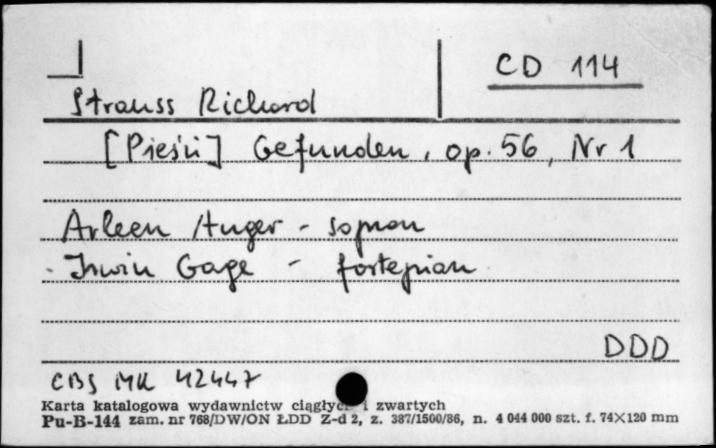 CD 114
Strauss Richard
[Pieśń] Gefunden, op. 56, Nr 1
Arleen Auger - sopran
Irwin Gage - fortepian
DDD
CBS MK 42447
Karta katalogowa wydawnictw ciągłych i zwartych
Pu-B-144 zam. nr 768/DW/ON ŁDD Z-d 2, z. 387/1500/86, n. 4 044 000 szt. f. 74×120 mm